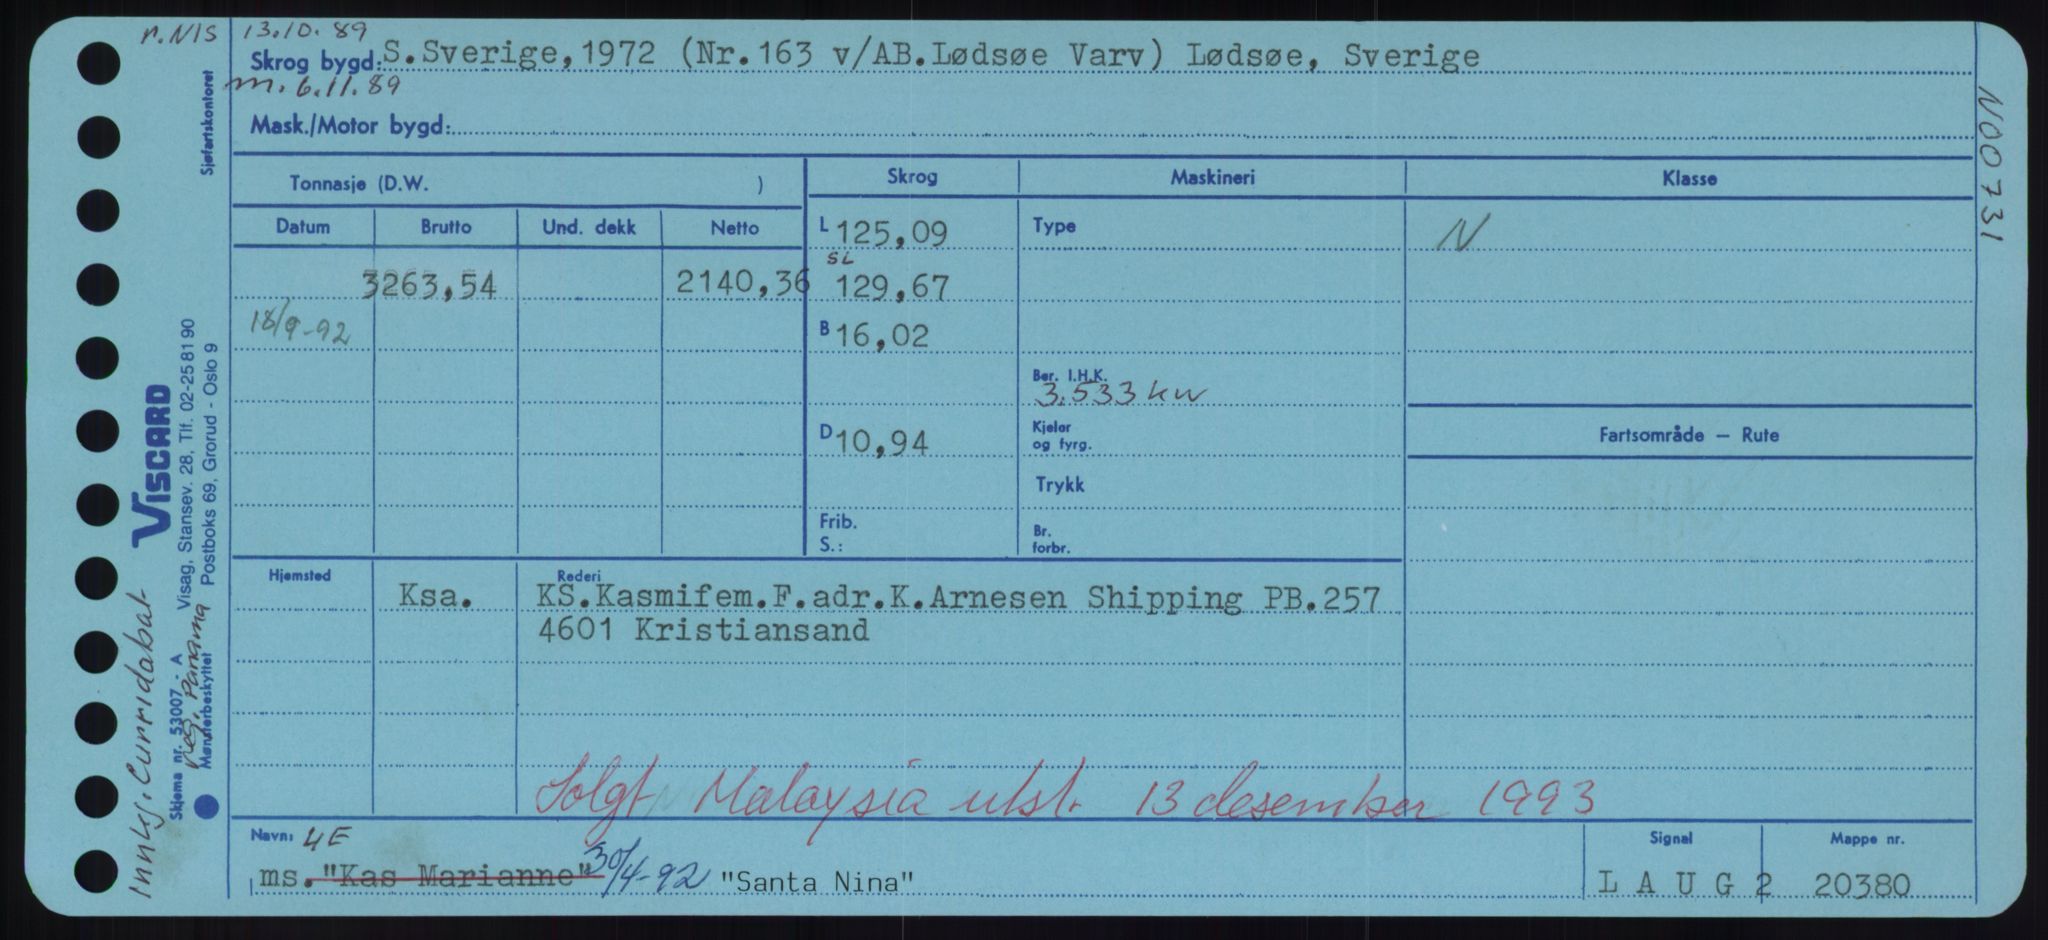 r.NIS 13.10.89
Skrog bygd: S.Sverige,1972 (Nr.163 v/AB.Lødsøe Varv) Lødsøe, Sverige
m. 6.11.89
Mask./Motor bygd:
Sjøfartskontoret
N00731
Tonnasje (D.W. )
Skrog
Maskineri
Klasse
Datum
Brutto
Und. dekk
Netto
L 125,09
Type
N
3263,54
2140,36
SL
129,67
18/9-92
B 16,02
Ber. I.H.K.
3.533 kw
D 10,94
Kjeler
og fyrg.
Fartsområde – Rute
Trykk
Frib.
S.:
Br.
forbr.
Hjemsted
Ksa.
Rederi
KS.Kasmifem.F.adr.K.Arnesen Shipping PB.257
4601 Kristiansand
Solgt Malaysia utst. 13 desember 1993
Navn: 4E
ms."Kas Marianne" 30/4-92 "Santa Nina"
Signal
L A U G 2
Mappe nr.
20380
VISCARD
Visag, Stansev. 28, Tlf. 02-25 81 90
Postboks 69, Grorud - Oslo 9
Skjema nr. 53007 - A
Mønsterbeskyttet
reg. Panama